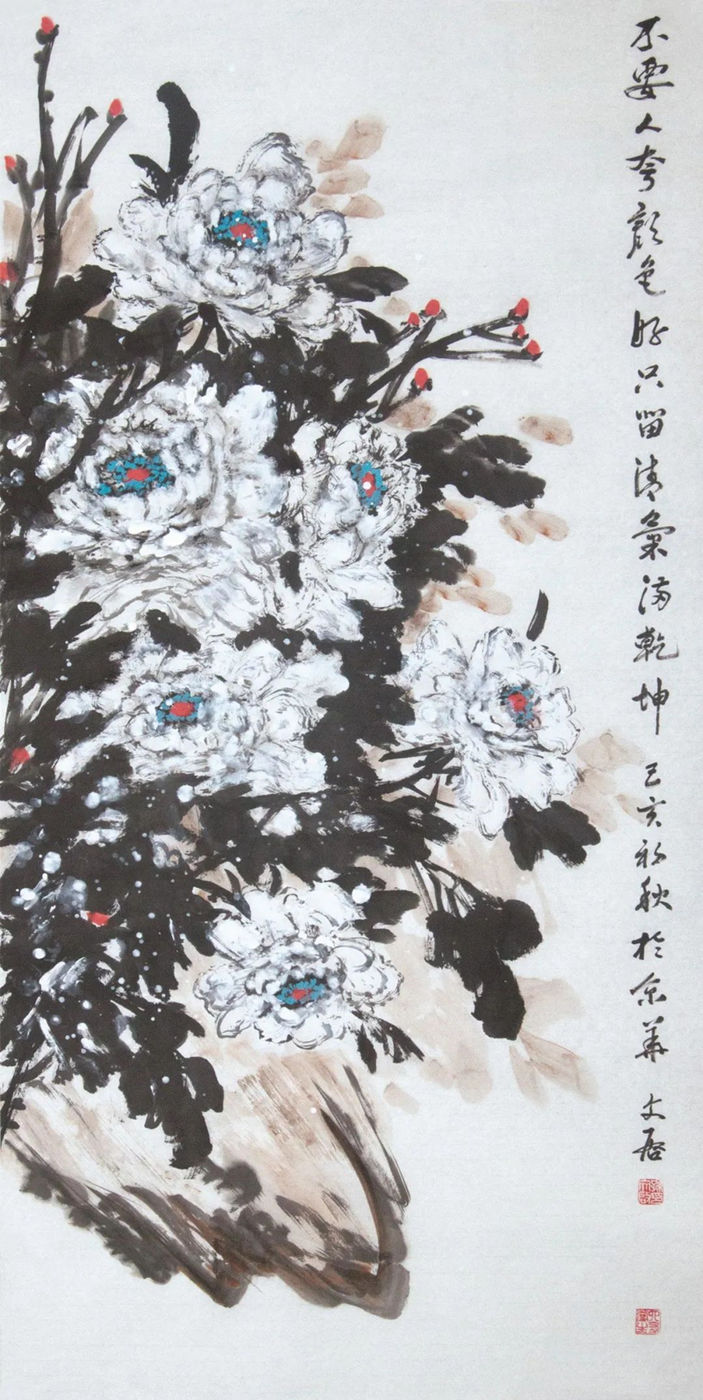 不要人夸颜色好只留清气满乾坤 己亥初秋於京华 文君